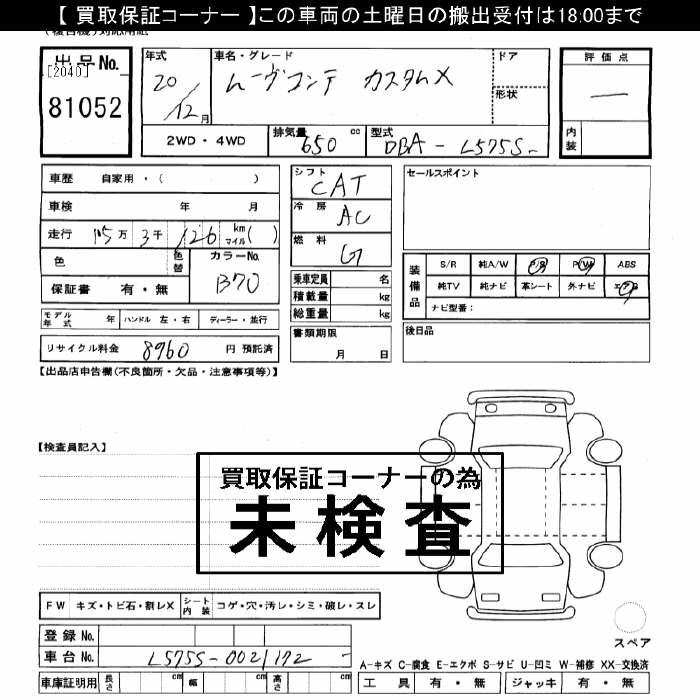 【 買取保証コーナー 】この車両の土曜日の搬出受付は18:00まで
出品No.
[2040]
81052
年式
20/12月
車名・グレード
ムーヴコンテ カスタムX
ドア
形状
評価点
―
内装
2WD・4WD
排気量
650 cc
型式
DBA-L575S-
車歴 自家用・( )
車検 年 月
走行 15万 3千 126 km マイル( )
色
色替
カラーNo.
B70
保証書 有・無
シフト
CAT
冷房
AC
燃料
G
乗車定員 名
積載量 kg
総重量 kg
セールスポイント
装備品
S/R 純A/W P/S P/W ABS
純TV 純ナビ 革シート 外ナビ エアB
ナビ型番:
モデル年式 年 ハンドル 左・右 ディーラー・並行
書類期限
月 日
後日品
リサイクル料金 8960 円 預託済
【出品店申告欄(不良箇所・欠品・注意事項等)】
【検査員記入】
買取保証コーナーの為
未検査
FW キズ・トビ石・割レX シート内装 コゲ・穴・汚レ・シミ・破レ・スレ
スペア
登録 No.
車台 No. L575S-0021172
A-キズ C-腐食 E-エクボ S-サビ U-凹ミ W-補修 XX-交換済
車庫証明用 長さ cm 幅 cm 高さ cm
工具 有・無 ジャッキ 有・無